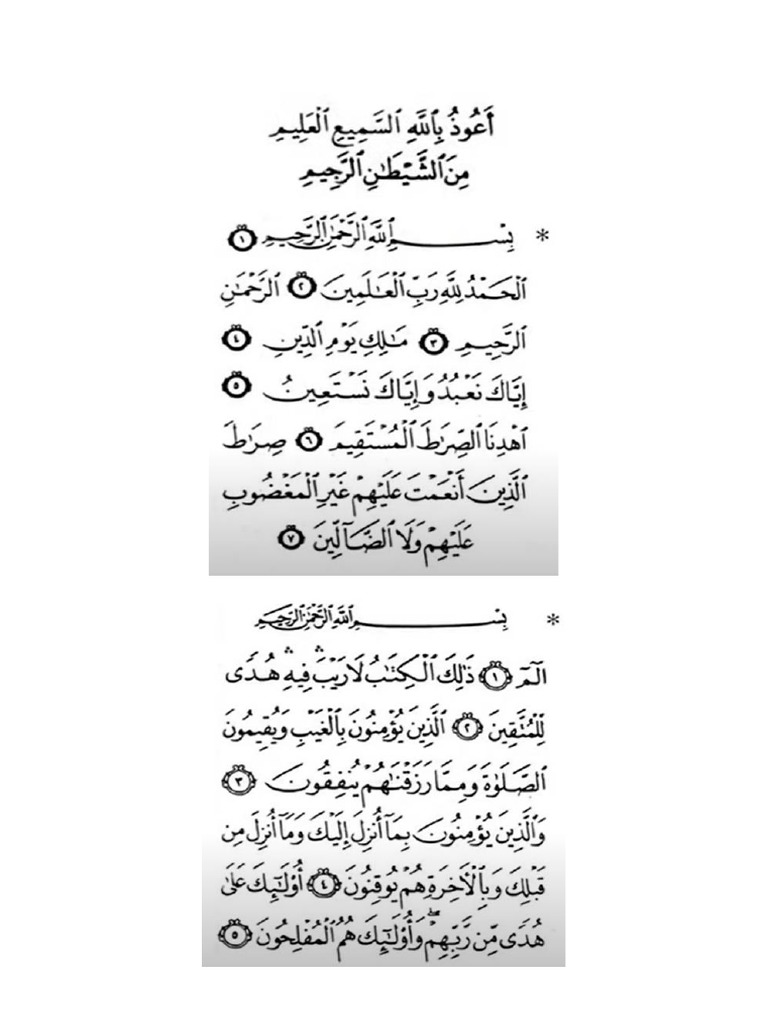 أَعُوذُ بِاللَّهِ السَّمِيعِ الْعَلِيمِ
مِنَ الشَّيْطَانِ الرَّجِيمِ
* بِسْمِ اللَّهِ الرَّحْمَٰنِ الرَّحِيمِ ١
الْحَمْدُ لِلَّهِ رَبِّ الْعَٰلَمِينَ ٢ الرَّحْمَٰنِ
الرَّحِيمِ ٣ مَٰلِكِ يَوْمِ الدِّينِ ٤
إِيَّاكَ نَعْبُدُ وَإِيَّاكَ نَسْتَعِينُ ٥
اهْدِنَا الصِّرَٰطَ الْمُسْتَقِيمَ ٦ صِرَٰطَ
الَّذِينَ أَنْعَمْتَ عَلَيْهِمْ غَيْرِ الْمَغْضُوبِ
عَلَيْهِمْ وَلَا الضَّآلِّينَ ٧
* بِسْمِ اللَّهِ الرَّحْمَٰنِ الرَّحِيمِ
الٓمٓ ١ ذَٰلِكَ الْكِتَٰبُ لَا رَيْبَ ۛ فِيهِ ۛ هُدًى
لِّلْمُتَّقِينَ ٢ الَّذِينَ يُؤْمِنُونَ بِالْغَيْبِ وَيُقِيمُونَ
الصَّلَوٰةَ وَمِمَّا رَزَقْنَٰهُمْ يُنفِقُونَ ٣
وَالَّذِينَ يُؤْمِنُونَ بِمَآ أُنزِلَ إِلَيْكَ وَمَآ أُنزِلَ مِن
قَبْلِكَ وَبِالْآخِرَةِ هُمْ يُوقِنُونَ ٤ أُوْلَٰٓئِكَ عَلَىٰ
هُدًى مِّن رَّبِّهِمْ ۖ وَأُوْلَٰٓئِكَ هُمُ الْمُفْلِحُونَ ٥